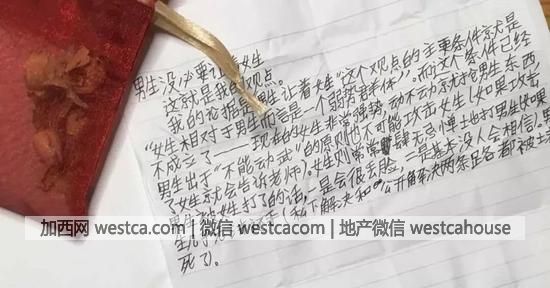 男生没必要让女生
这就是我的观点。
我的论据是"男生让着女生"这个观点的主要条件就是
"女生相对于男生而言是一个弱势群体"。而这个条件已经
不成立了——现在的女生非常强势,动不动就抢男生东西,
男生出于"不能动武"的原则也不可能攻击女生(如果攻击
了女生就会告诉老师)。女生则常常肆无忌惮地打男生如果
男生被女生打了的话,一是会很丢脸,二是基本没人会相信,男
(私下解决和"公开解决"两条足各都被土
死了。
加西网 westca.com | 微信 westcacom | 地产微信 westcahouse